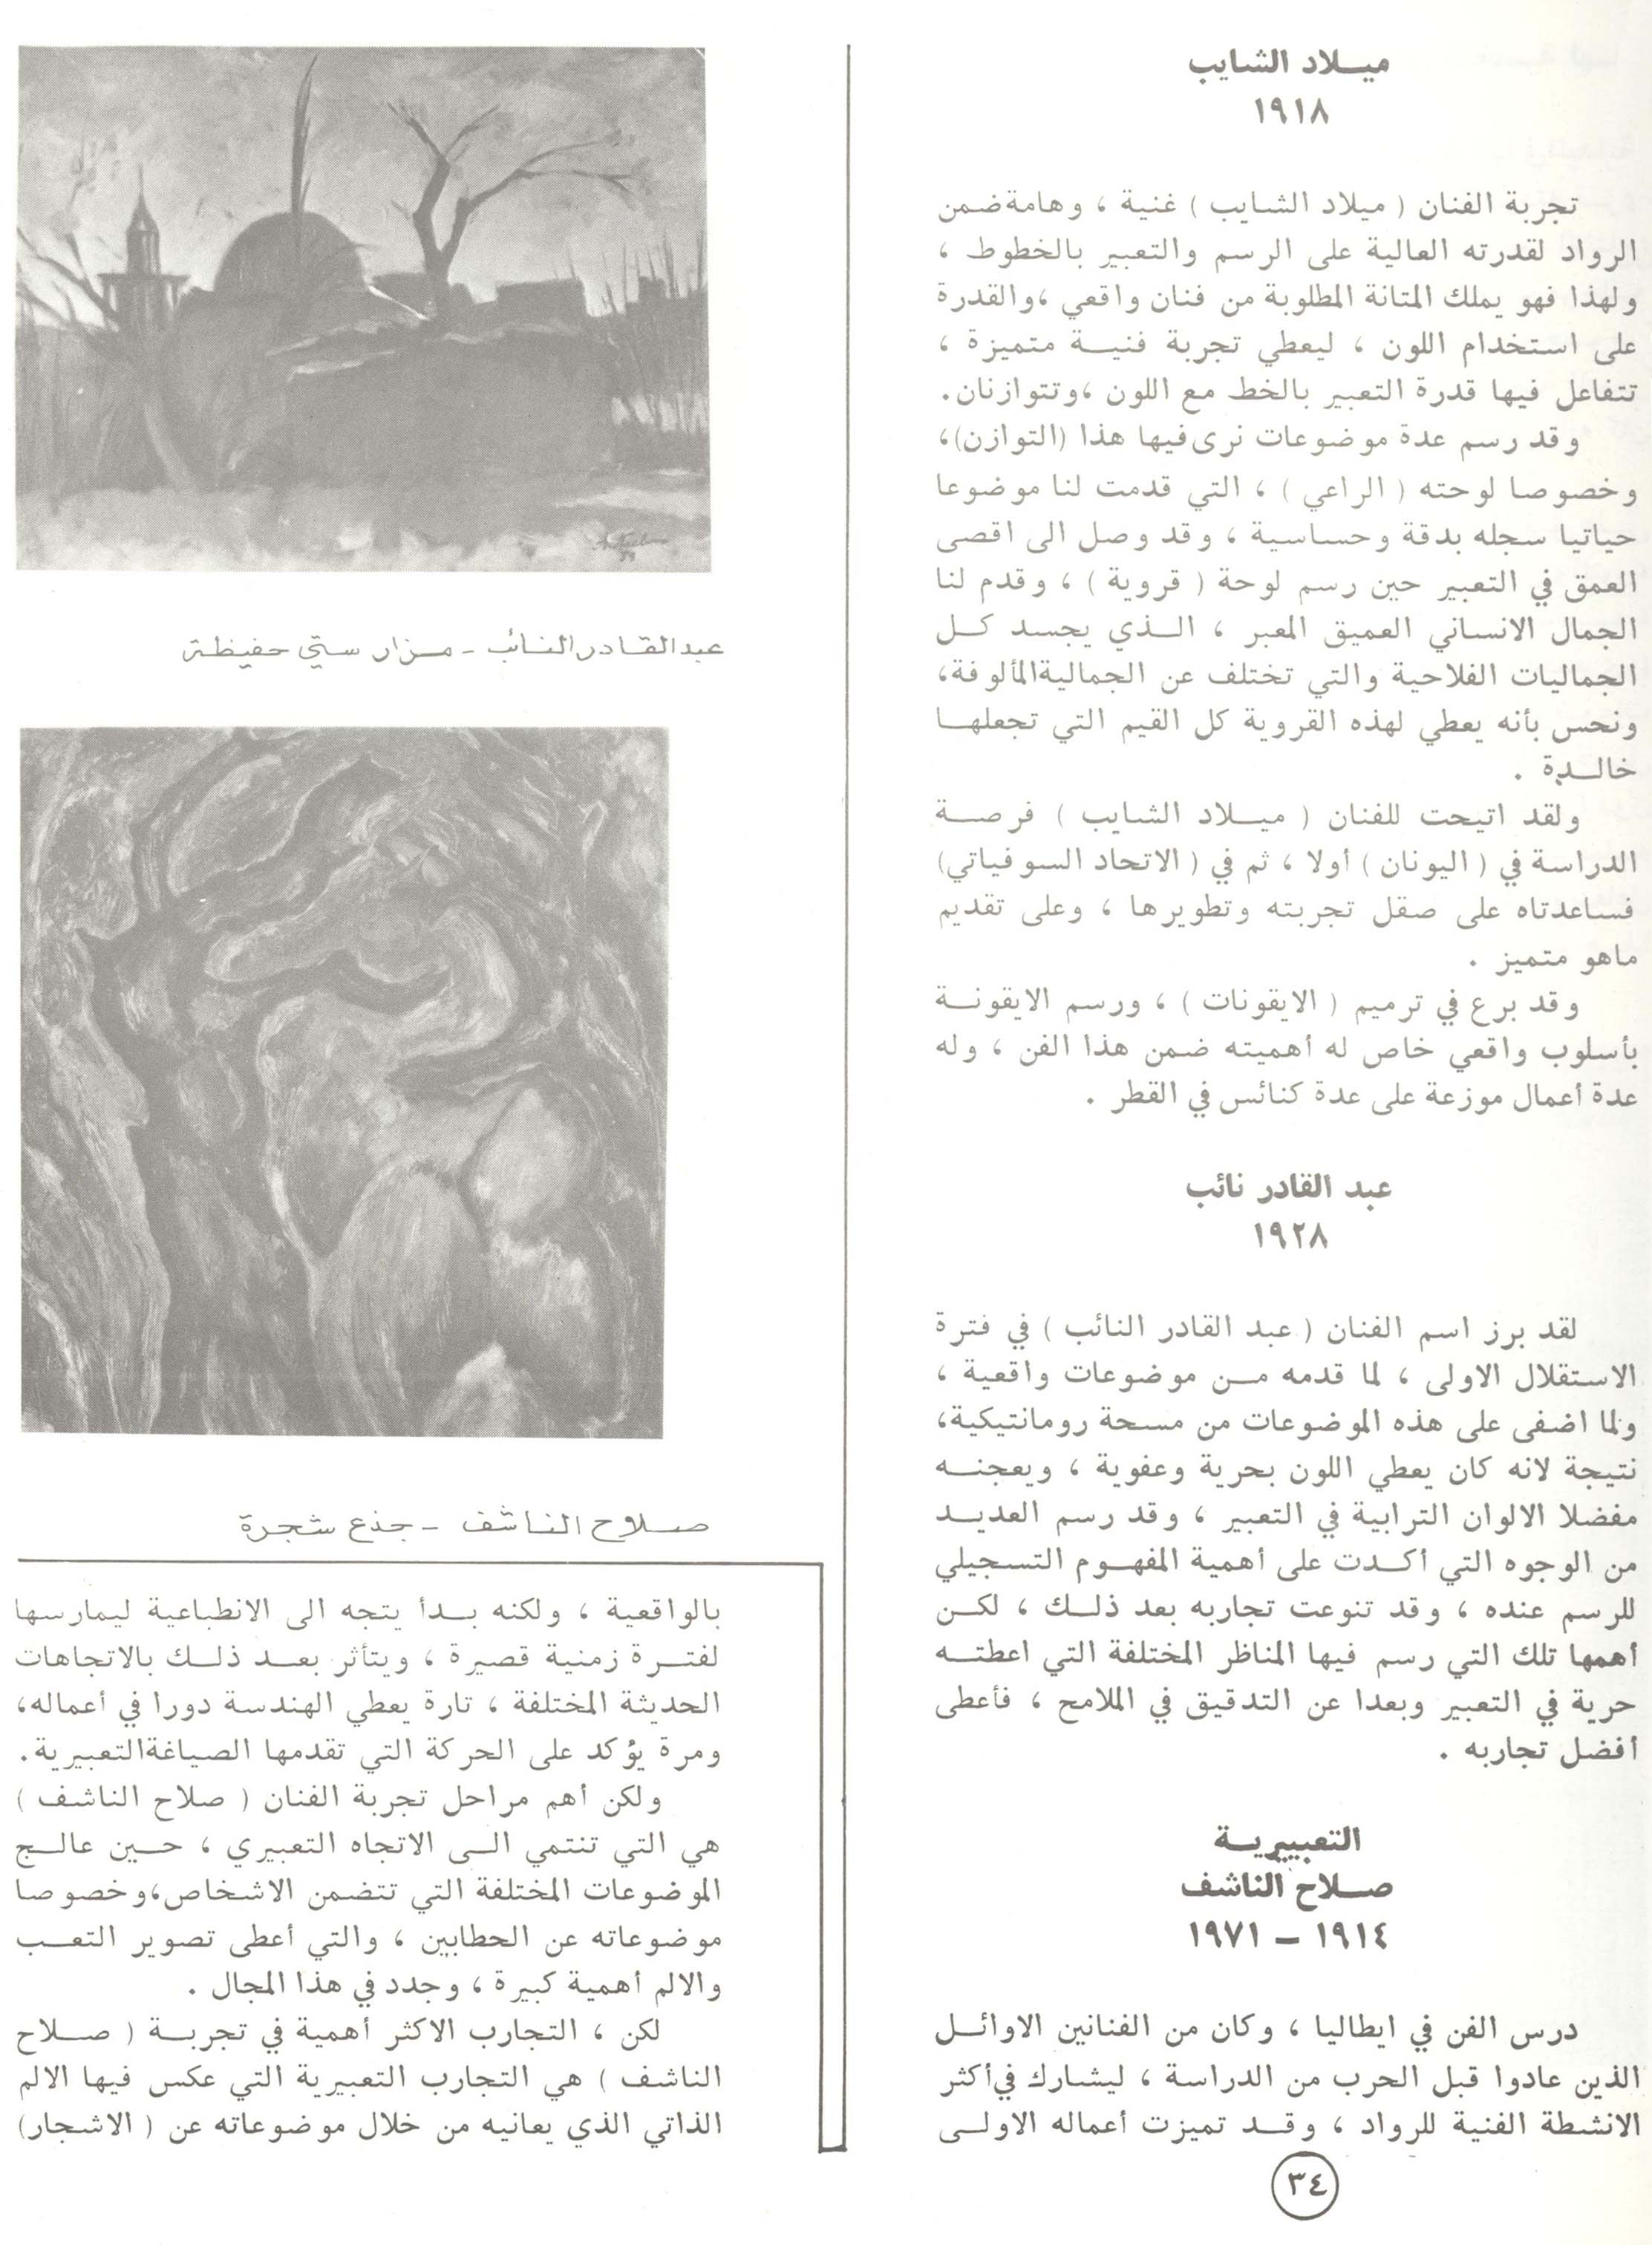 ميـلاد الشايب
١٩١٨
تجربة الفنان ( ميلاد الشايب ) غنية ، وهامة ضمن
الرواد لقدرته العالية على الرسم والتعبير بالخطوط ،
ولهذا فهو يملك المتانة المطلوبة من فنان واقعي ،والقدرة
على استخدام اللون ، ليعطي تجربة فنيـة متميزة ،
تتفاعل فيها قدرة التعبير بالخط مع اللون ،وتتوازنان.
وقد رسم عدة موضوعات نرى فيها هذا (التوازن)،
وخصوصا لوحته ( الراعي ) ، التي قدمت لنا موضوعا
حياتيا سجله بدقة وحساسية ، وقد وصل الى اقصى
العمق في التعبير حين رسم لوحة ( قروية ) ، وقدم لنا
الجمال الانساني العميق المعبر ، الـذي يجسد كـل
الجماليات الفلاحية والتي تختلف عن الجمالية المألوفة،
ونحس بأنه يعطي لهذه القروية كل القيم التي تجعلهـا
خالـدة .
ولقد اتيحت للفنان ( ميـلاد الشايب ) فرصـة
الدراسة في ( اليونان ) أولا ، ثم في ( الاتحاد السوفياتي)
فساعدتاه على صقل تجربته وتطويرها ، وعلى تقديم
ماهو متميز .
وقد برع في ترميم ( الايقونات ) ، ورسم الايقونـة
بأسلوب واقعي خاص له أهميته ضمن هذا الفن ، وله
عدة أعمال موزعة على عدة كنائس في القطر .
عبد القادر نائب
١٩٢٨
لقد برز اسم الفنان ( عبد القادر النائب ) في فترة
الاستقلال الاولى ، لما قدمه مـن موضوعات واقعية ،
ولما اضفى على هذه الموضوعات من مسحة رومانتيكية،
نتيجة لانه كان يعطي اللون بحرية وعفوية ، ويعجنـه
مفضلا الالوان الترابية في التعبير ، وقد رسم العديـد
من الوجوه التي أكـدت على أهمية المفهـوم التسجيلي
للرسم عنده ، وقد تنوعت تجاربه بعد ذلـك ، لكـن
أهمها تلك التي رسم فيها المناظر المختلفة التي اعطتـه
حرية في التعبير وبعدا عن التدقيق في الملامح ، فأعطى
أفضل تجاربه .
التعبيريـة
صـلاح الناشف
١٩١٤ – ١٩٧١
درس الفن في ايطاليا ، وكان من الفنانين الاوائـل
الذين عادوا قبل الحرب من الدراسة ، ليشارك في أكثر
الانشطة الفنية للرواد ، وقـد تميزت أعماله الاولـى
٣٤
عبد القادر النائب - مزار ستي حفيظة
صلاح الناشف - جذع شجرة
بالواقعية ، ولكنه بـدأ يتجه الى الانطباعية ليمارسها
لفتـرة زمنية قصيرة ، ويتأثر بعـد ذلـك بالاتجاهات
الحديثة المختلفة ، تارة يعطي الهندسة دورا في أعماله،
ومرة يؤكد على الحركة التي تقدمها الصياغة التعبيرية.
ولكن أهم مراحل تجربة الفنان ( صلاح الناشف )
هي التي تنتمي الـى الاتجاه التعبيري ، حـين عالـج
الموضوعات المختلفة التي تتضمن الاشخاص،وخصوصا
موضوعاته عن الحطابين ، والتي أعطى تصوير التعـب
والالم أهمية كبيرة ، وجدد في هذا المجال .
لكن ، التجارب الاكثر أهمية في تجربـة ( صـلاح
الناشف ) هي التجارب التعبيرية التي عكس فيها الالم
الذاتي الذي يعانيه من خلال موضوعاته عن ( الاشجار)